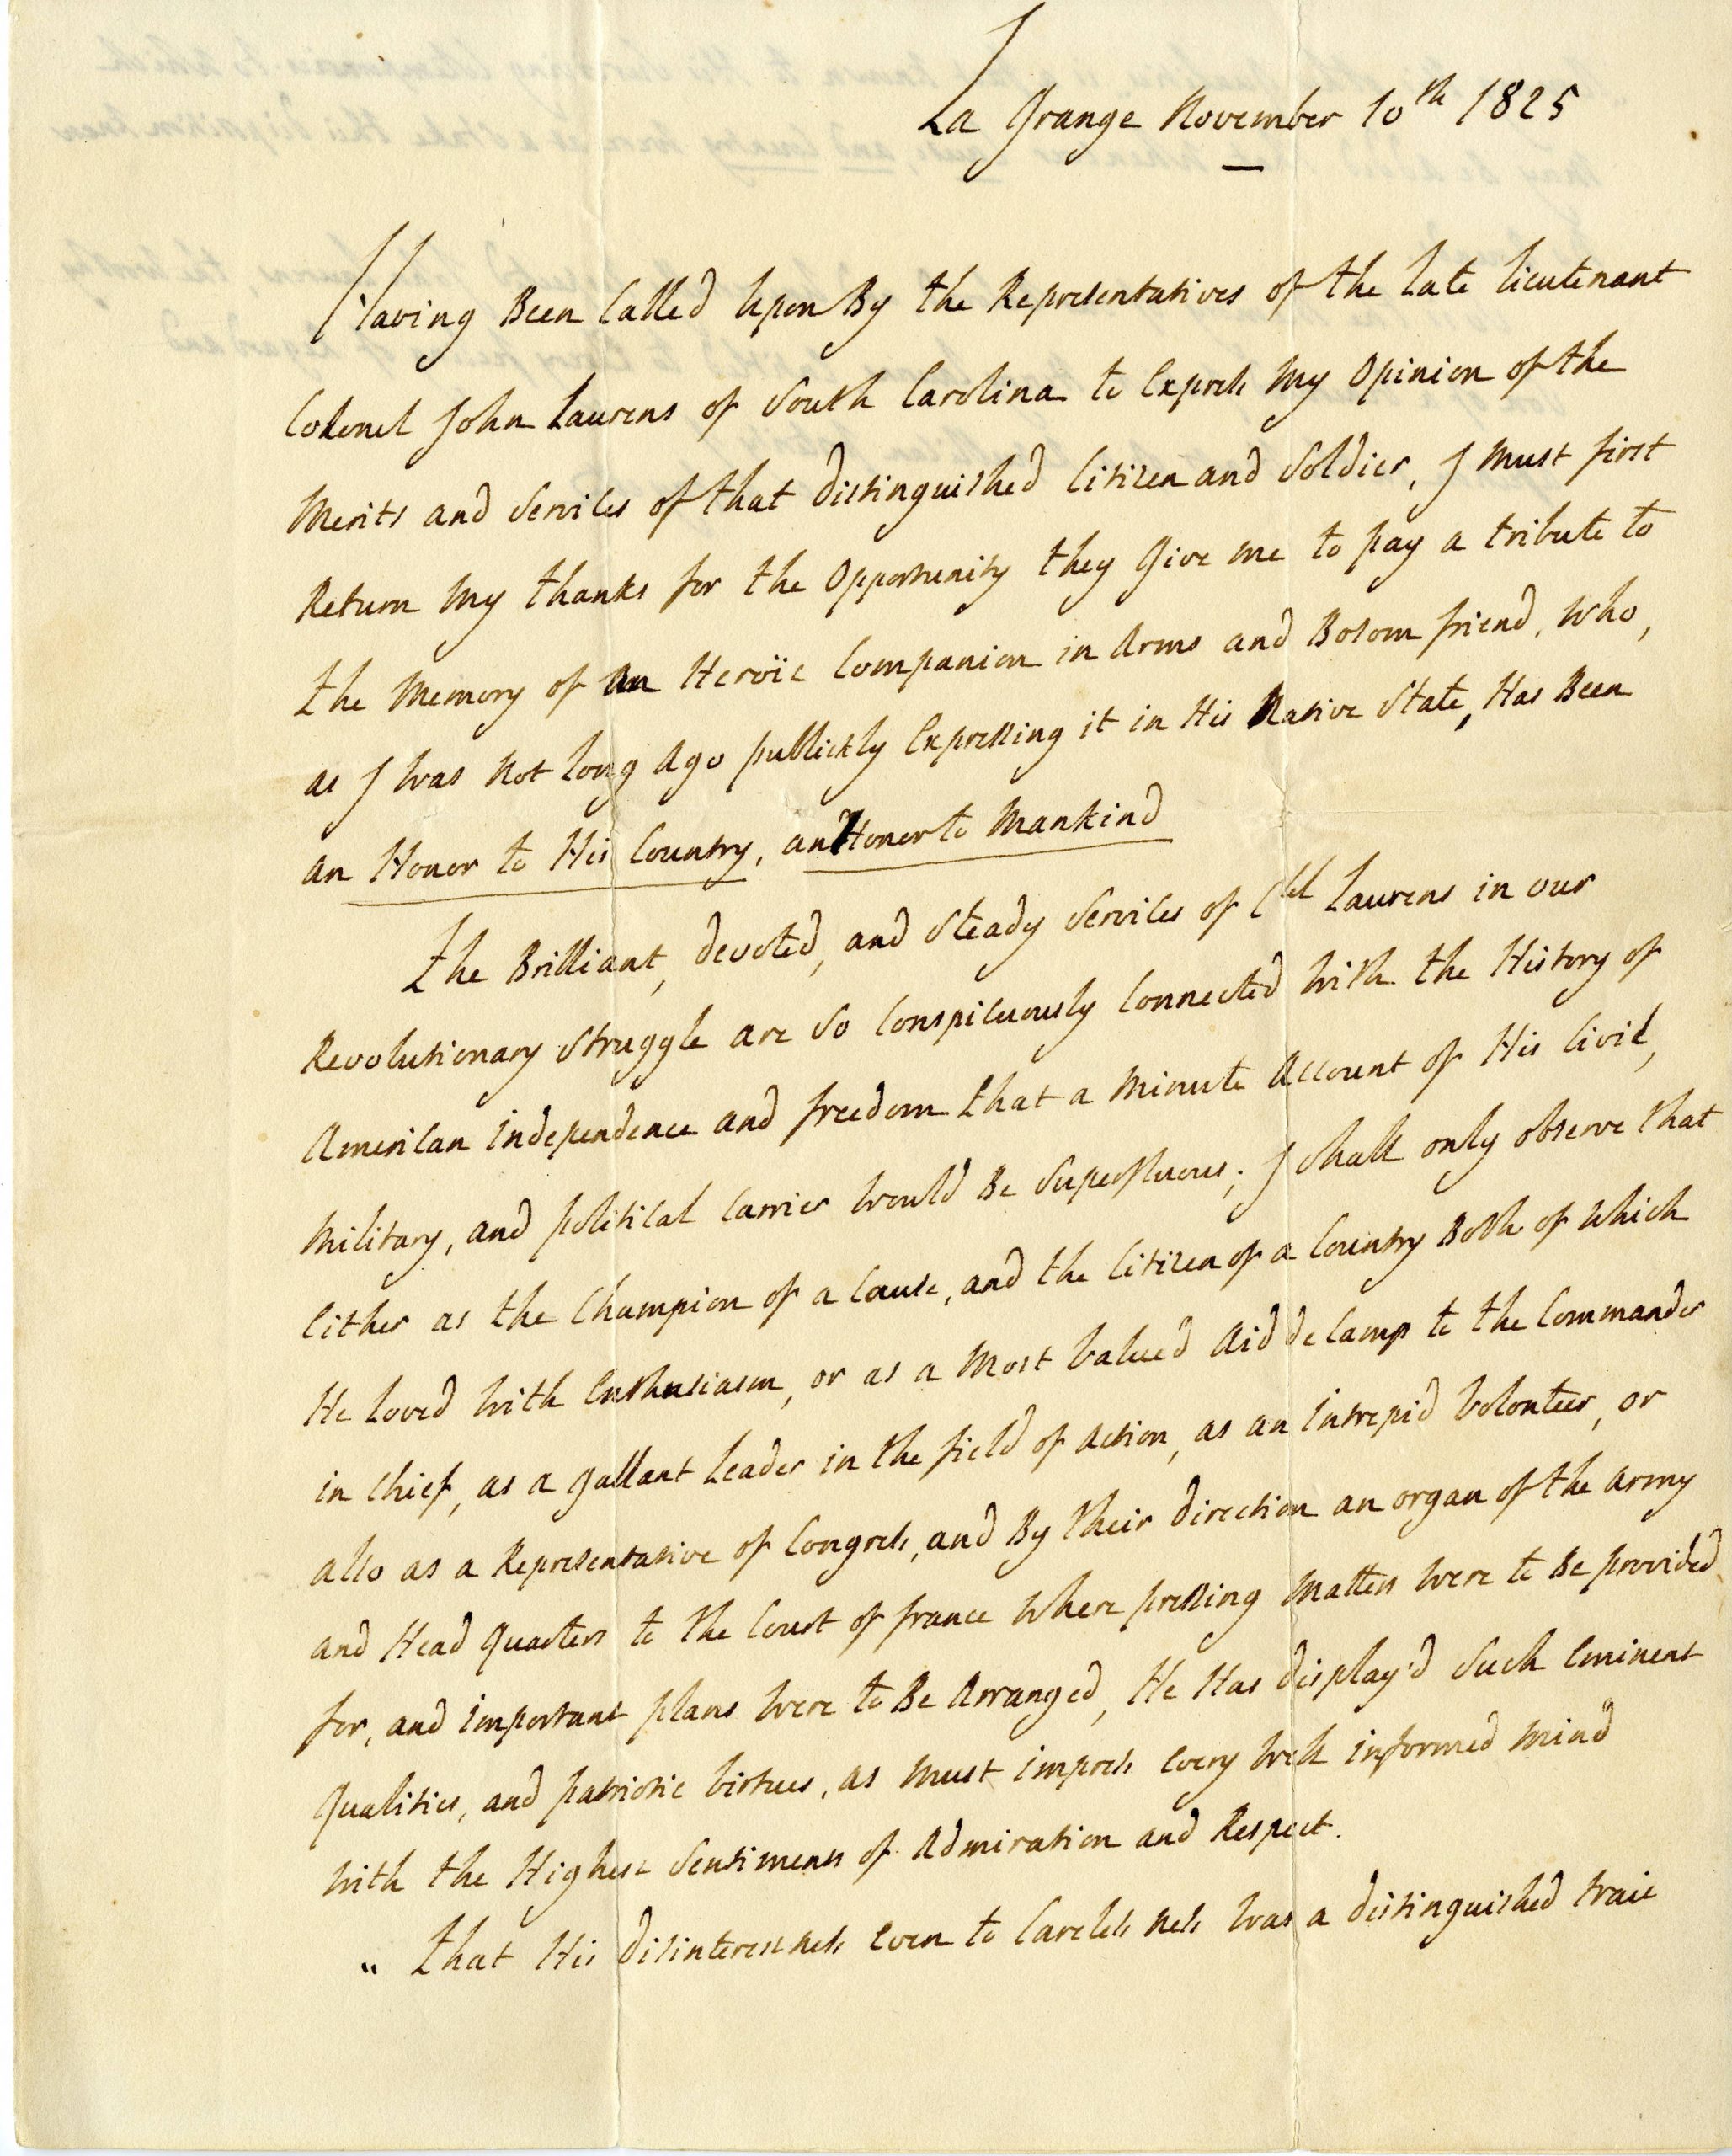 La Grange November 10th 1825
Having Been Called Upon By the Representatives of the late lieutenant
Colonel John Laurens of South Carolina to Express My Opinion of the
Merits and Services of that distinguished Citizen and Soldier, I Must first
Return My thanks for the Opportunity they Give me to pay a tribute to
the Memory of an Heroïc Companion in Arms and Bosom friend, who,
as I was Not long Ago publickly Expressing it in His Native State, Has Been
an Honor to His Country, an Honor to Mankind
The Brilliant, devoted, and Steady Services of Clel Laurens in our
Revolutionary Struggle are So Conspicuously Connected with the History of
American independence and freedom that a Minute Account of His Civil,
Military, and political Carrier would Be Superfluous; I shall only observe that
Either as the Champion of a Cause, and the Citizen of a Country Both of which
He loved with Enthusiasm, or as a Most Valued Aid de Camp to the Commander
in Chief, as a gallant leader in the field of Action, as an intrepid Volonteer, or
also as a Representative of Congress, and By their direction an organ of the Army
and Head Quarters to the Court of france where pressing Matters were to Be provided
for, and important plans were to Be Arranged, He Has display'd Such Eminent
Qualities, and patriotic Virtues, as Must impress Every well informed Mind
with the Highest Sentiments of Admiration and Respect.
" that His disinterestness Even to Careless ness was a distinguished trait